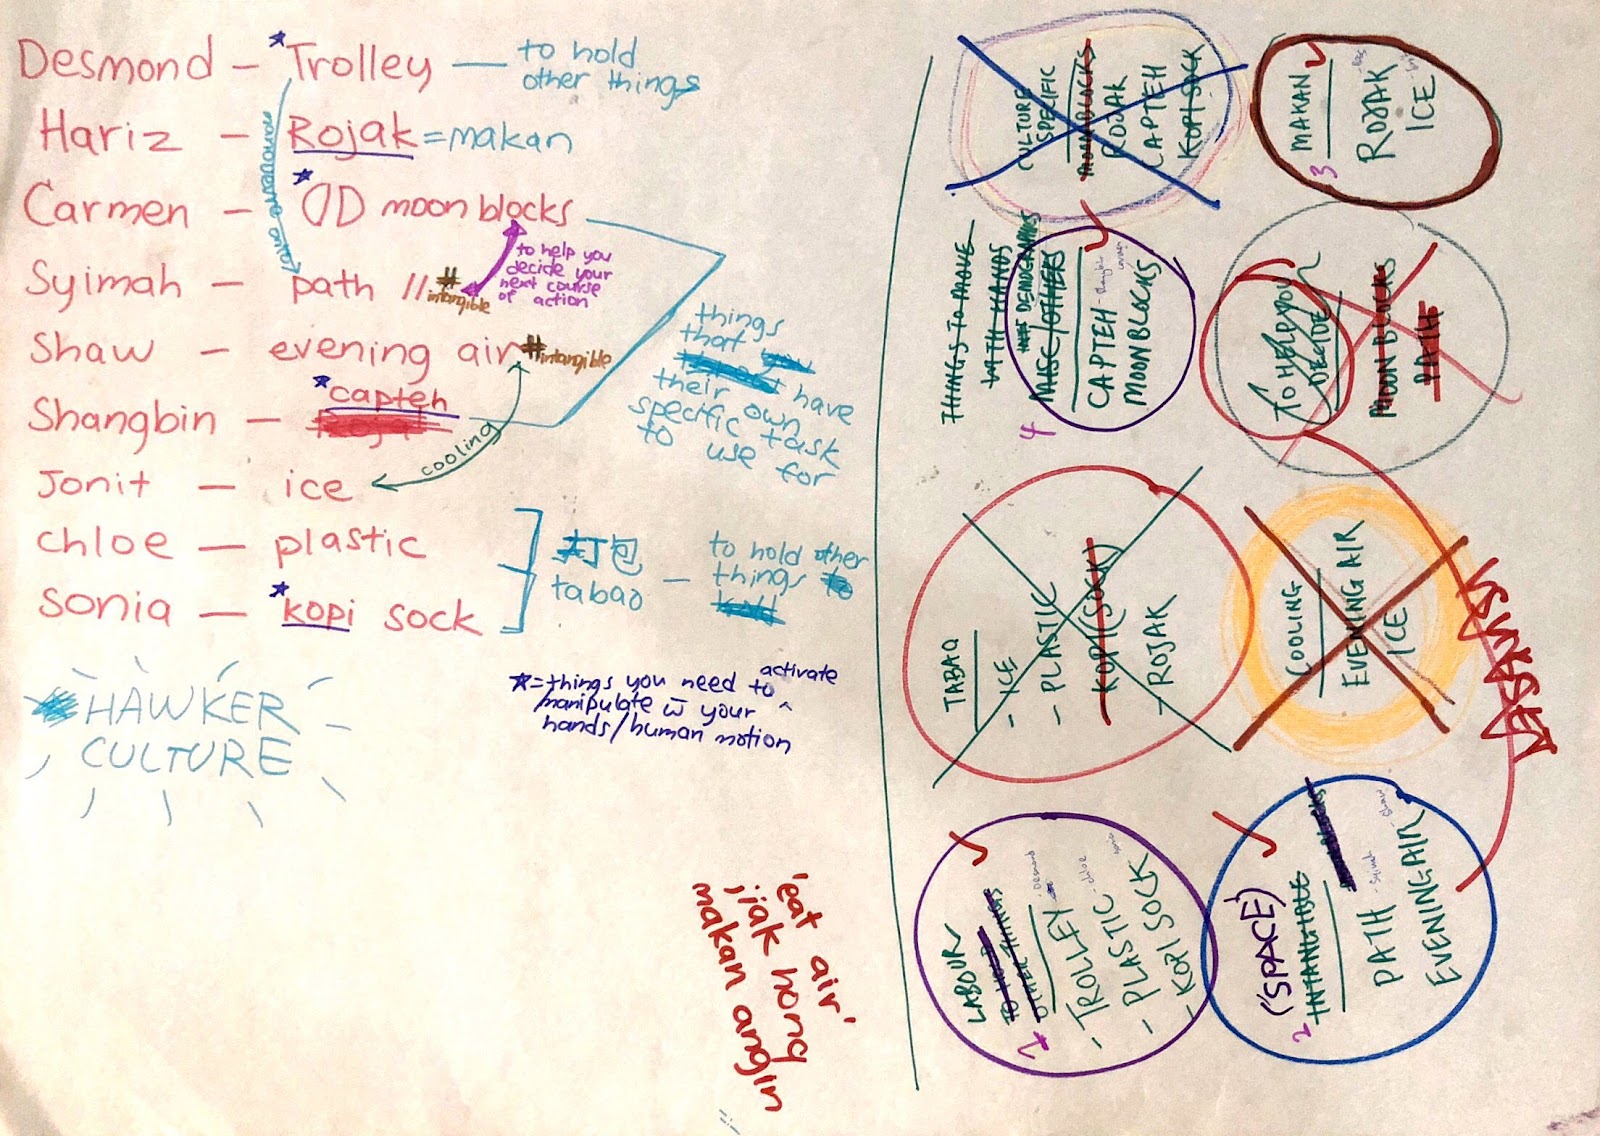 Desmond – Trolley — to hold
other things
Hariz – Rojak = makan
Carmen – moon blocks
Syimah – path // # intangible
to help you
decide your
next course
of action
Shaw – evening air # intangible
Shangbin – capteh
Jonit – ice
cooling
chloe – plastic
sonia – kopi sock
打包
tabao – to hold other
things
things
that
have
their own
specific task
to use for
manoeuvre
HAWKER
CULTURE
★ = things you need to activate
manipulate w̄ your
hands/human motion
'eat air'
jiak hong
makan angin
CULTURE
SPECIFIC
MOONBLOCKS
ROJAK
CAPTEH
KOPI SOCK
3 MAKAN
ROJAK
ICE
THINGS TO MOVE
WITH HANDS
4 MISC/OTHERS
CAPTEH - Shangbin
MOONBLOCKS
TO HELP YOU
DECIDE
MOON BLOCKS
PATH
TABAO
- ICE
- PLASTIC
- KOPI (SOCK)
- ROJAK
COOLING
EVENING AIR
ICE
LABOUR
TO HOLD
OTHER THINGS
- TROLLEY - Desmond
- PLASTIC - chloe
- KOPI SOCK sonia
("SPACE")
2 INTANGIBLE
PATH - Syimah
EVENING AIR - Shaw